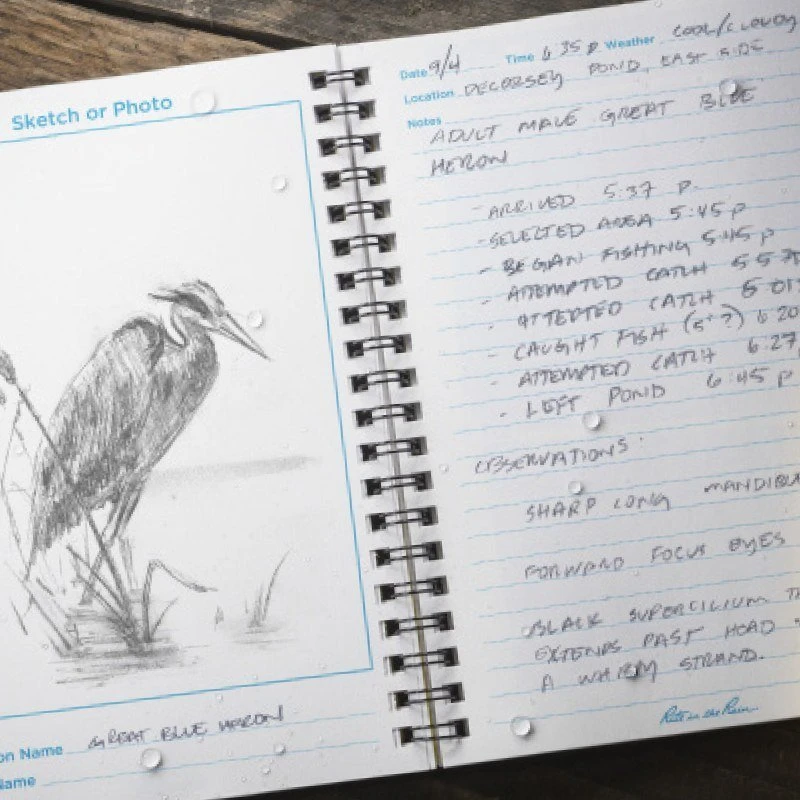 Sketch or Photo
on Name GREAT BLUE HERON
Name
Date 9/4 Time 6 35 P Weather COOL/CLOUDY
Location DECORSEY POND, EAST SIDE
Notes
ADULT MALE GREAT BLUE
HERON
- ARRIVED 5:37 P.
- SELECTED AREA 5:45 P
- BEGAN FISHING 5:45 P
- ATTEMPTED CATCH 5 57
- ATTEPTED CATCH 6 01
- CAUGHT FISH (5" ?) 6 20
- ATTEMPTED CATCH 6:27
- LEFT POND 6:45 P
OBSERVATIONS:
SHARP LONG MANDIBL
FORWARD FOCUS EYES
BLACK SUPERCILIUM T
EXTENDS PAST HEAD
A WHISPY STRAND.
Rite in the Rain